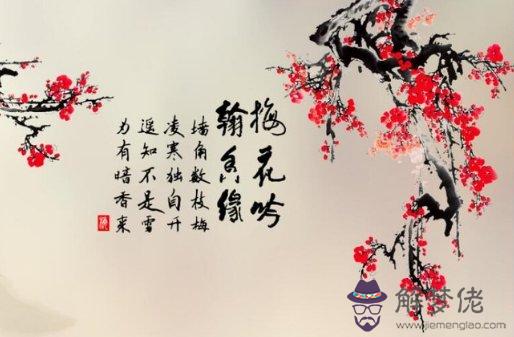 梅花吟
翰缘
墙角数枝梅
凌寒独自开
遥知不是雪
为有暗香来
解梦佬
www.jiemenglao.com